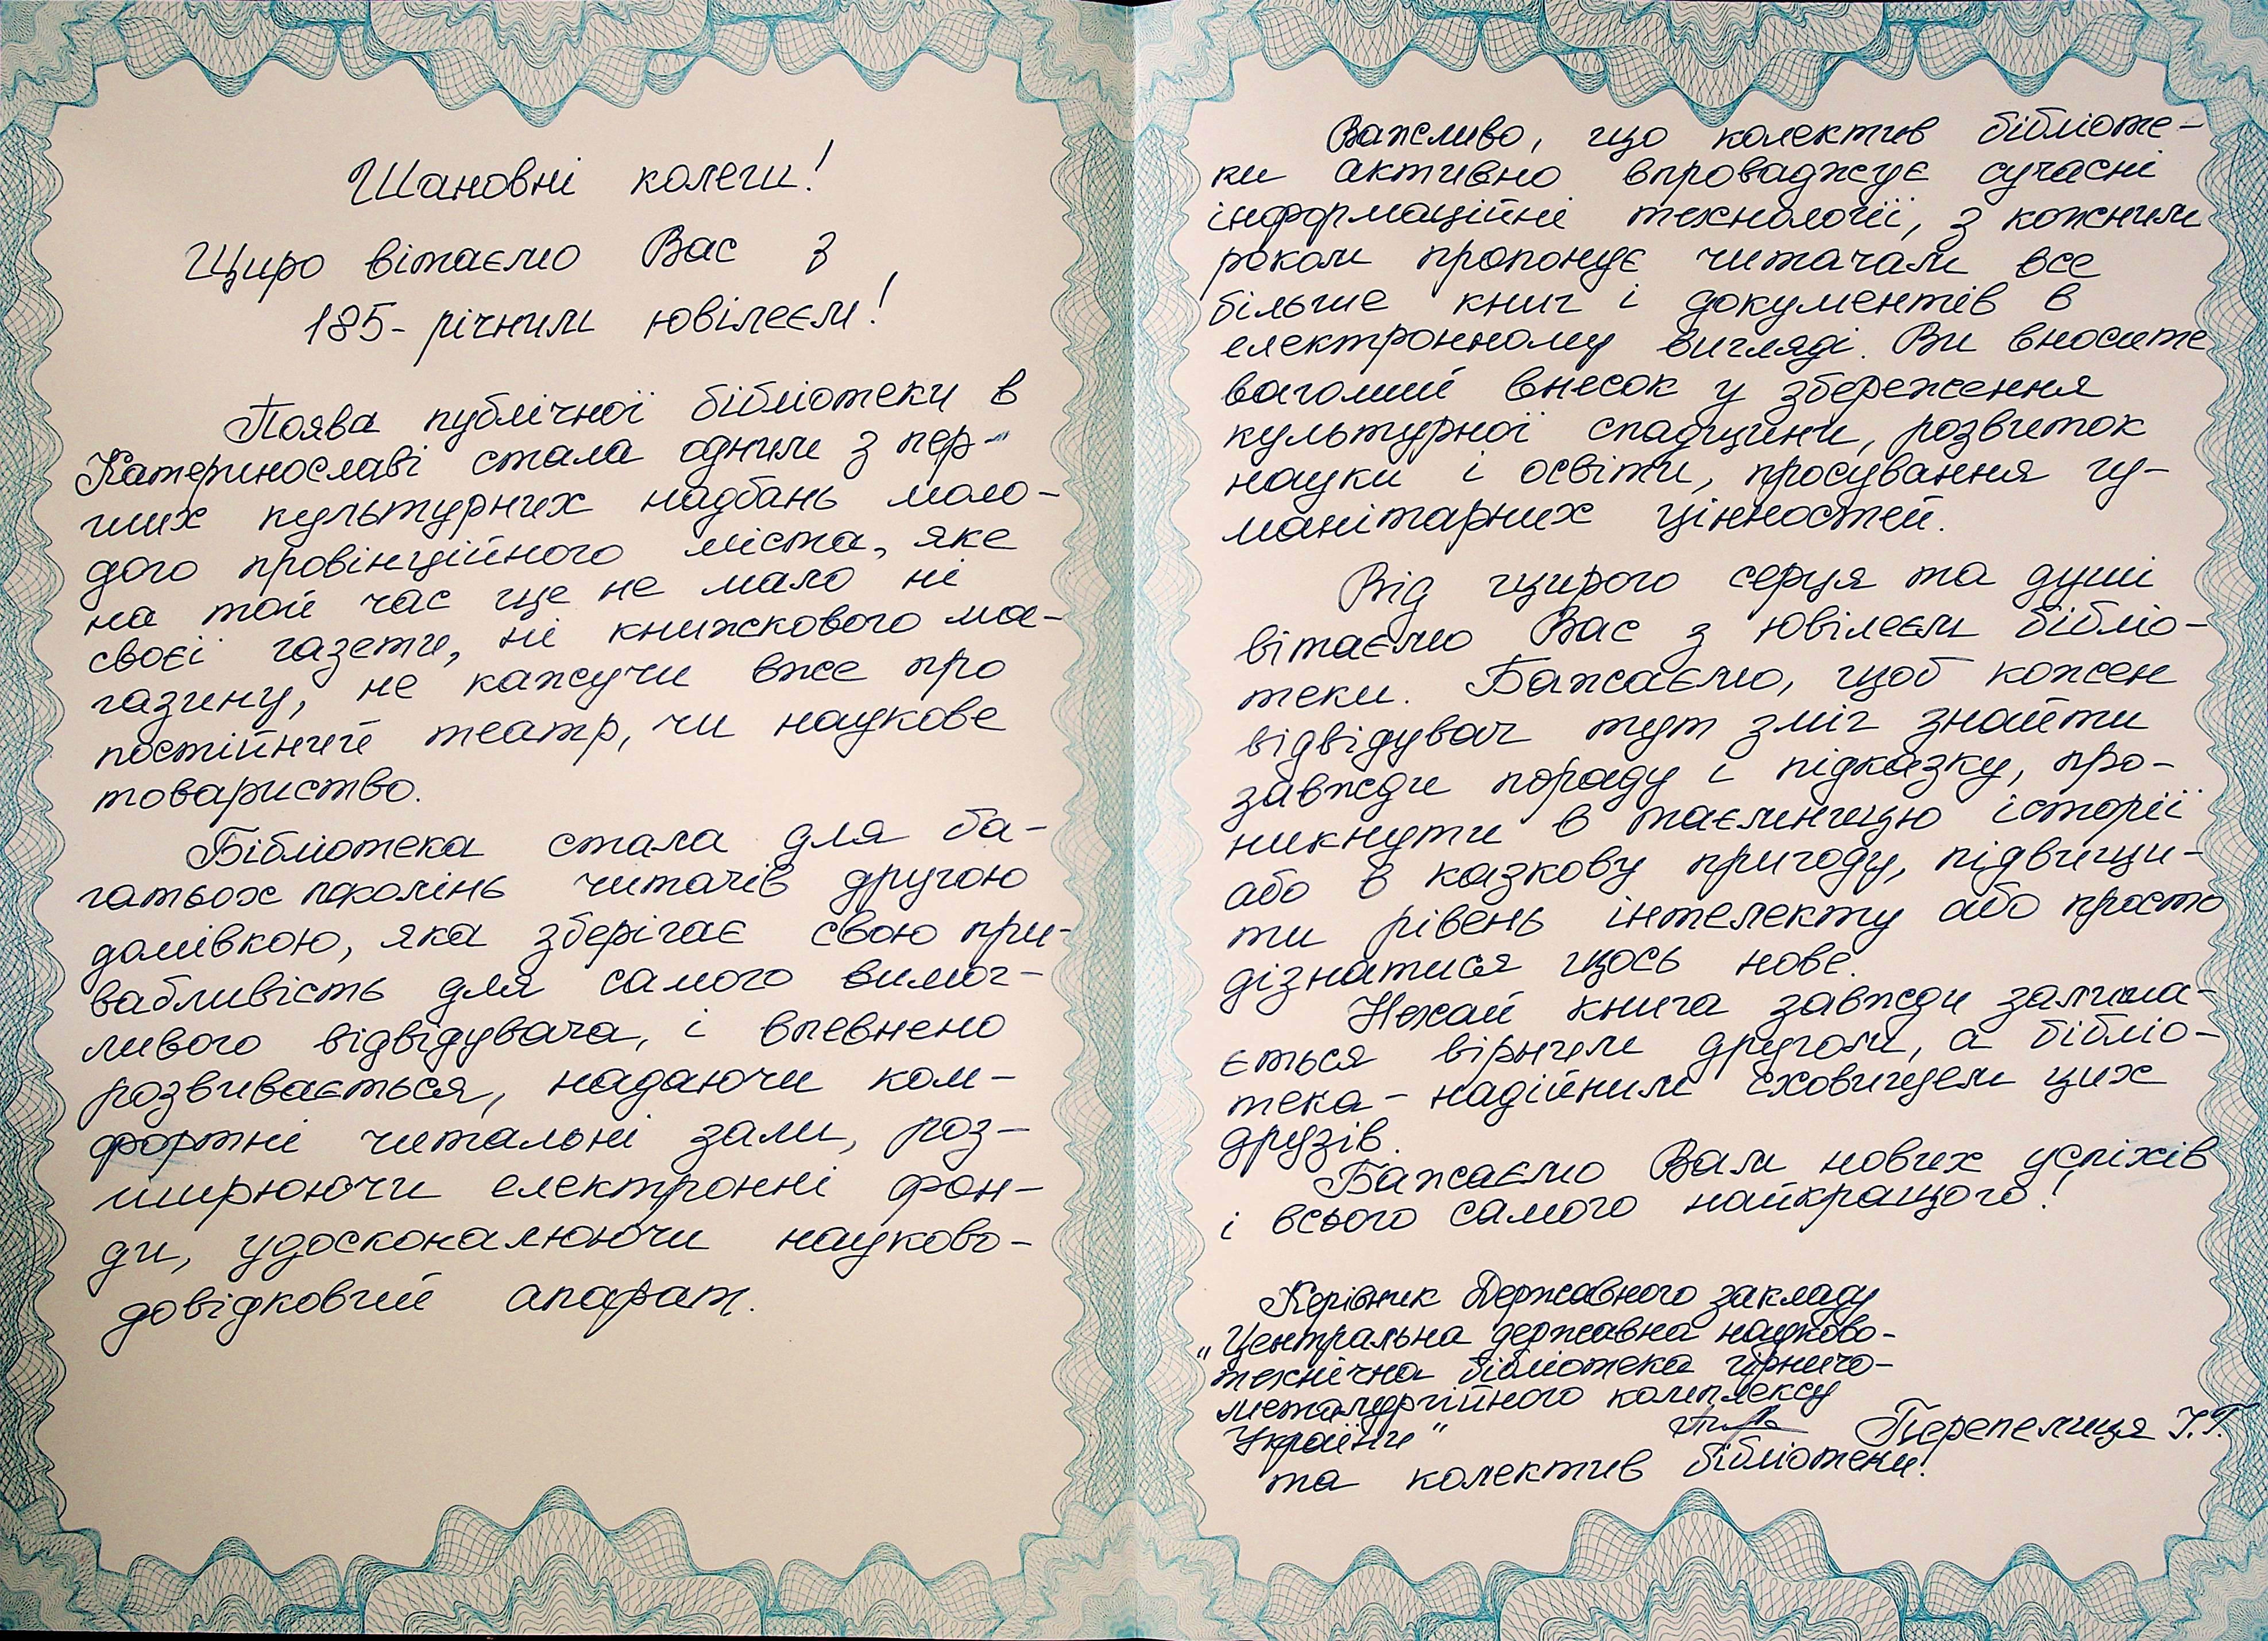 Шановні колеги!
Щиро вітаємо Вас з
185-річним ювілеєм!
Поява публічної бібліотеки в
Катеринославі стала одним з пер-
ших культурних надбань моло-
дого провінційного міста, яке
на той час ще не мало ні
своєї газети, ні книжкового ма-
газину, не кажучи вже про
постійний театр, чи наукове
товариство.
Бібліотека стала для ба-
гатьох поколінь читачів другою
домівкою, яка зберігає свою при-
вабливість для самого вимог-
ливого відвідувача, і впевнено
розвивається, надаючи ком-
фортні читальні зали, роз-
ширюючи електронні фон-
ди, удосконалюючи науково-
довідковий апарат.
Важливо, що колектив бібліоте-
ки активно впроваджує сучасні
інформаційні технології, з кожним
роком пропонує читачам все
більше книг і документів в
електронному вигляді. Ви вносите
вагомий внесок у збереження
культурної спадщини, розвиток
науки і освіти, просування гу-
манітарних цінностей.
Від щирого серця та душі
вітаємо Вас з ювілеєм бібліо-
теки. Бажаємо, щоб кожен
відвідувач тут зміг знайти
завжди пораду і підказку, про-
никнути в таємницю історії
або в казкову пригоду, підвищи-
ти рівень інтелекту або просто
дізнатися щось нове.
Нехай книга завжди залиша-
ється вірним другом, а бібліо-
тека - надійним сховищем цих
друзів.
Бажаємо Вам нових успіхів
і всього самого найкращого!
Керівник Державного закладу
„Центральна державна науково-
технічна бібліотека гірничо-
металургійного комплексу
України" Перепелиця І.Г.
та колектив бібліотеки!